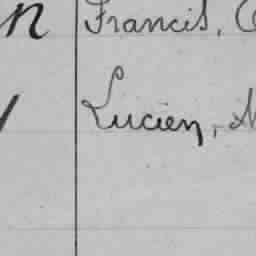 n Francis,
Lucien,